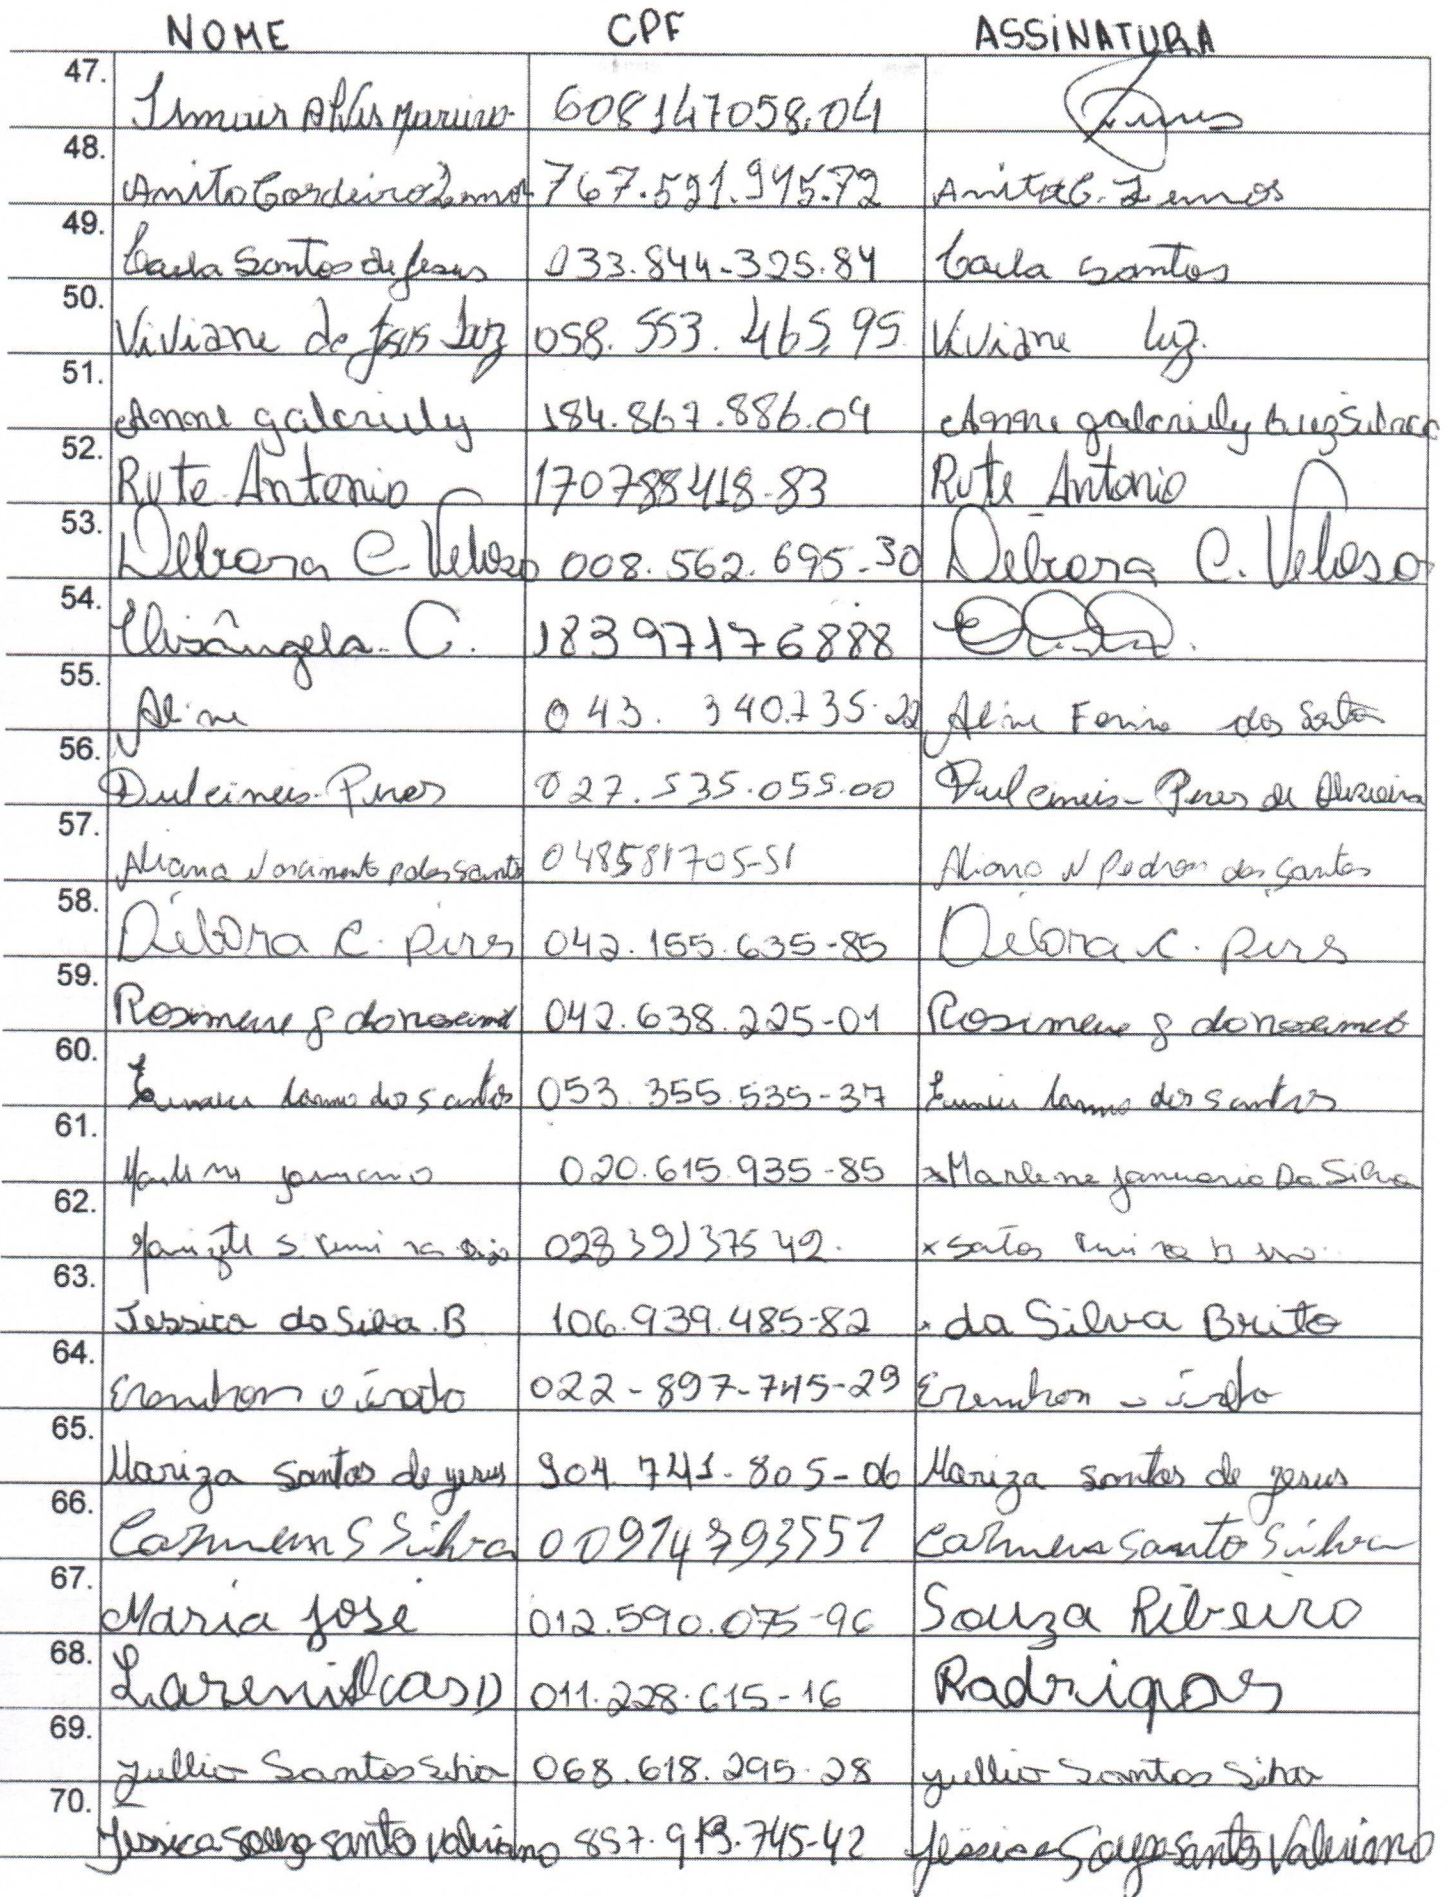 NOME CPF ASSINATURA
47. Ismair Alves 608147058.04
48. Anita Cordeiro Lemos 767.521.945.72 Anita C. Lemos
49. Carla Santos de Jesus 033.844-325.84 Carla Santos
50. Viviane de Jesus Luz 058.553.465.95 Viviane Luz.
51. Anne gabriely 184.867.886.09 Anne gabriely Luz
52. Rute Antonio 170788418-83 Rute Antonio
53. Débora C. Veloso 008.562.695-30 Débora C. Veloso
54. Elisângela C. 18397176888
55. Aline 043.340.735-22 Aline dos Santos
56. Dulcineis Pires 027.535.055.00 Dulcineis Pires de Oliveira
57. Aliana Nascimento dos Santos 048581705-51 Aliana N Pedron dos Santos
58. Débora C. pires 042.155.635-85 Débora C. pires
59. Rosimene g do 042.638.225-01 Rosimene g do
60. dos Santos 053.355.535-37 dos Santos
61. Marlene januario 020.615.935-85 x Marlene januario Da Silva
62. 02839137542. x
63. Jessica da Silva.B 106.939.485-82 x da Silva Brito
64. 022-897-745-29
65. Mariza Santos de jesus 904.741-805-06 Mariza Santos de jesus
66. Carmem S Silva 00974793551 Carmem Santo Silva
67. Maria José 012.590.075-96 Souza Ribeiro
68. 011.228.615-16 Rodrigos
69. yullio Santos Silva 068.618.295-28 yullio Santos Silva
70. Jéssica Souza santo Valeriano 857.913.745-42 Jéssica Souza santo Valeriano